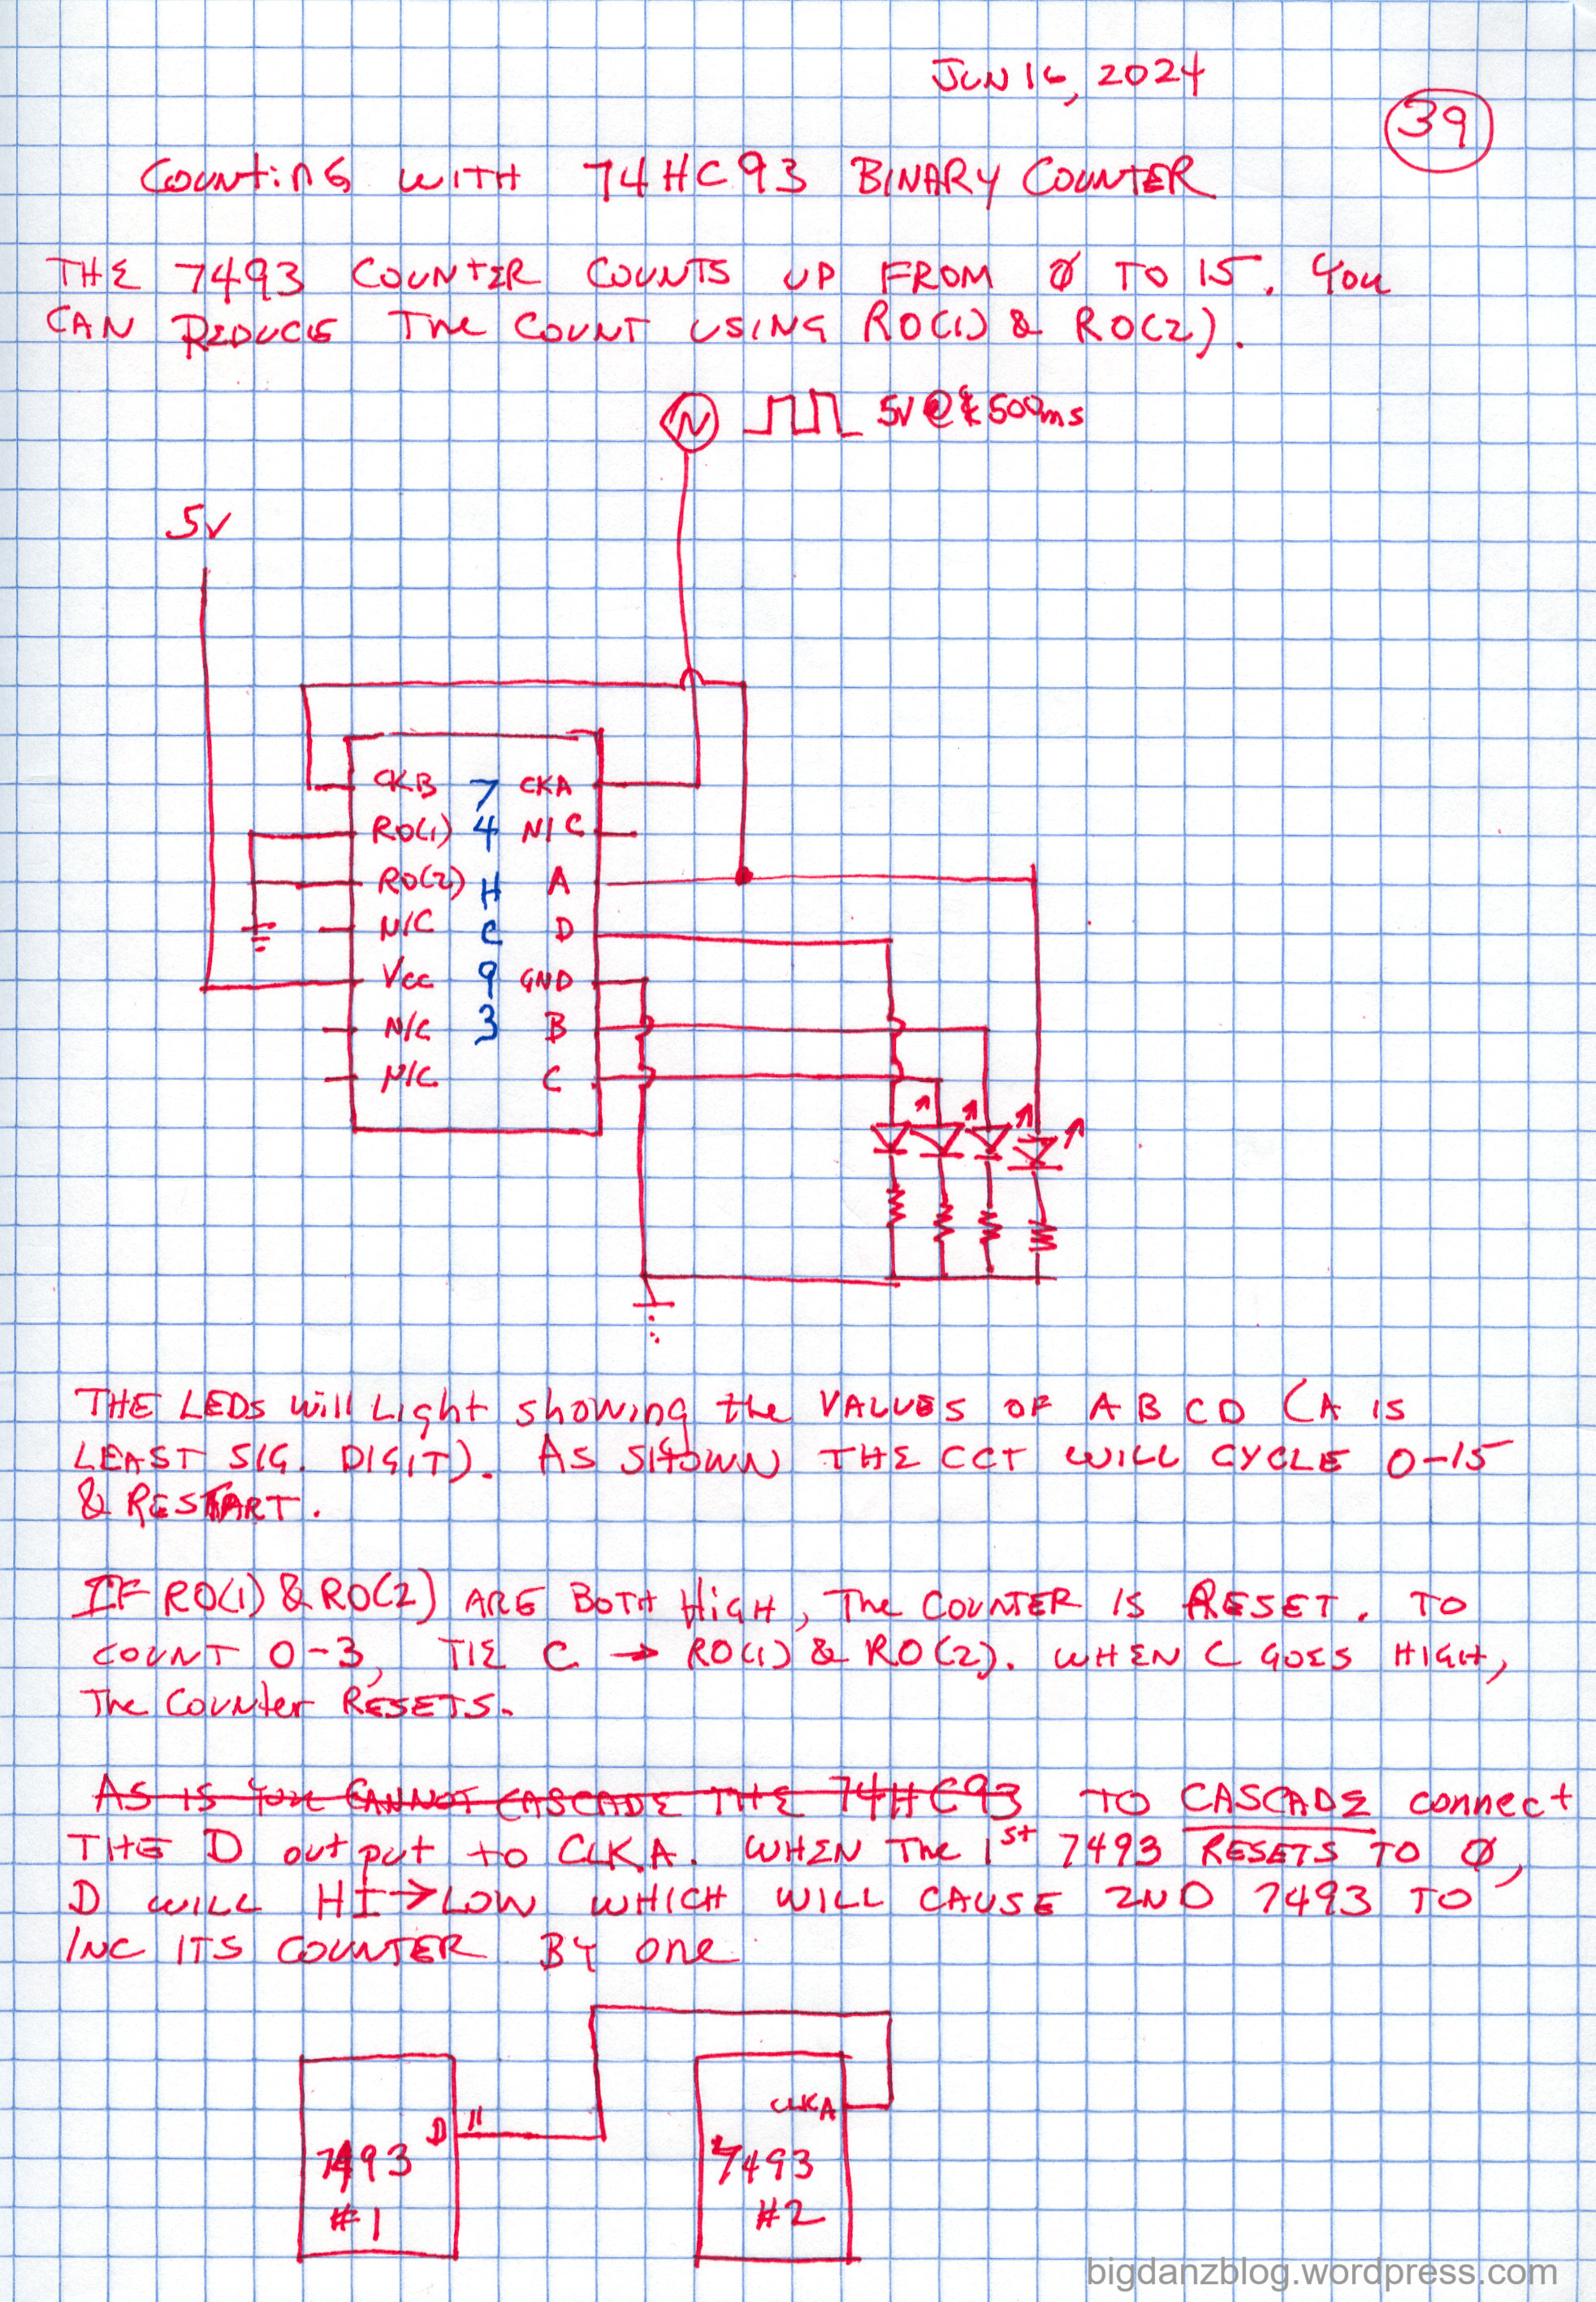 JUN 16, 2024
39
COUNTING WITH 74HC93 BINARY COUNTER
THE 7493 COUNTER COUNTS UP FROM Ø TO 15. YOU
CAN REDUCE THE COUNT USING RO(1) & RO(2).
5V @ 500ms
5V
CKB 7 CKA
RO(1) 4 N/C
RO(2) H A
N/C C D
Vcc 9 GND
N/C 3 B
N/C C
THE LEDs will Light showing the VALUES OF A B C D (A IS
LEAST SIG. DIGIT). AS SHOWN THE CCT WILL CYCLE 0-15
& RESTART.
IF RO(1) & RO(2) ARE BOTH HIGH, THE COUNTER IS RESET. TO
COUNT 0-3, TIE C → RO(1) & RO(2). WHEN C GOES HIGH,
The Counter RESETS.
AS IS YOU CANNOT CASCADE THE 74HC93 TO CASCADE connect
THE D output to CLKA. WHEN The 1st 7493 RESETS TO Ø,
D WILL HI→LOW WHICH WILL CAUSE 2ND 7493 TO
INC ITS COUNTER BY one
D 11
CLKA
7493
#1
7493
#2
bigdanzblog.wordpress.com